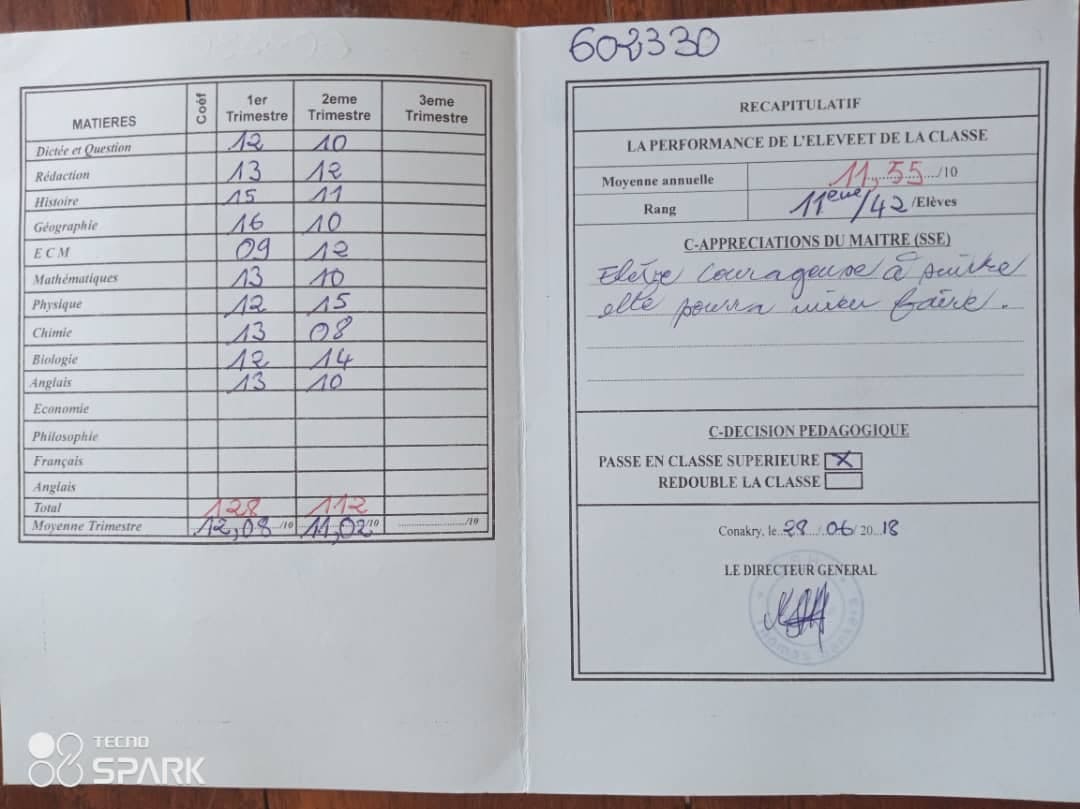 MATIERES Coéf 1er Trimestre 2eme Trimestre 3eme Trimestre
Dictée et Question 12 10
Rédaction 13 12
Histoire 15 11
Géographie 16 10
E C M 09 12
Mathématiques 13 10
Physique 12 15
Chimie 13 08
Biologie 12 14
Anglais 13 10
Economie
Philosophie
Français
Anglais
Total 128 112
Moyenne Trimestre 12,08 /10 11,02 /10 ........................../10
602330
RECAPITULATIF
LA PERFORMANCE DE L'ELEVEET DE LA CLASSE
Moyenne annuelle 11,55 /10
Rang 11ème/42 /Elèves
C-APPRECIATIONS DU MAITRE (SSE)
Elève Courageuse à suivre
elle pourra mieu faire.
C-DECISION PEDAGOGIQUE
PASSE EN CLASSE SUPERIEURE X
REDOUBLE LA CLASSE
Conakry, le..28.../..06/ 20..18
LE DIRECTEUR GENERAL
TECNO
SPARK